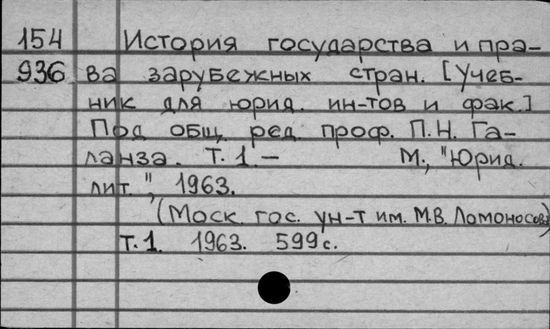 154 История государства и пра-
936 ва зарубежных стран. [Учеб-
ник для юрид. ин-тов и фак.]
Под общ. ред. проф. П.Н. Га-
ланза. Т.1.— М., "Юрид.
лит.", 1963.
(Моск. гос. ун-т им. М.В. Ломоносова)
Т.1. 1963. 599с.